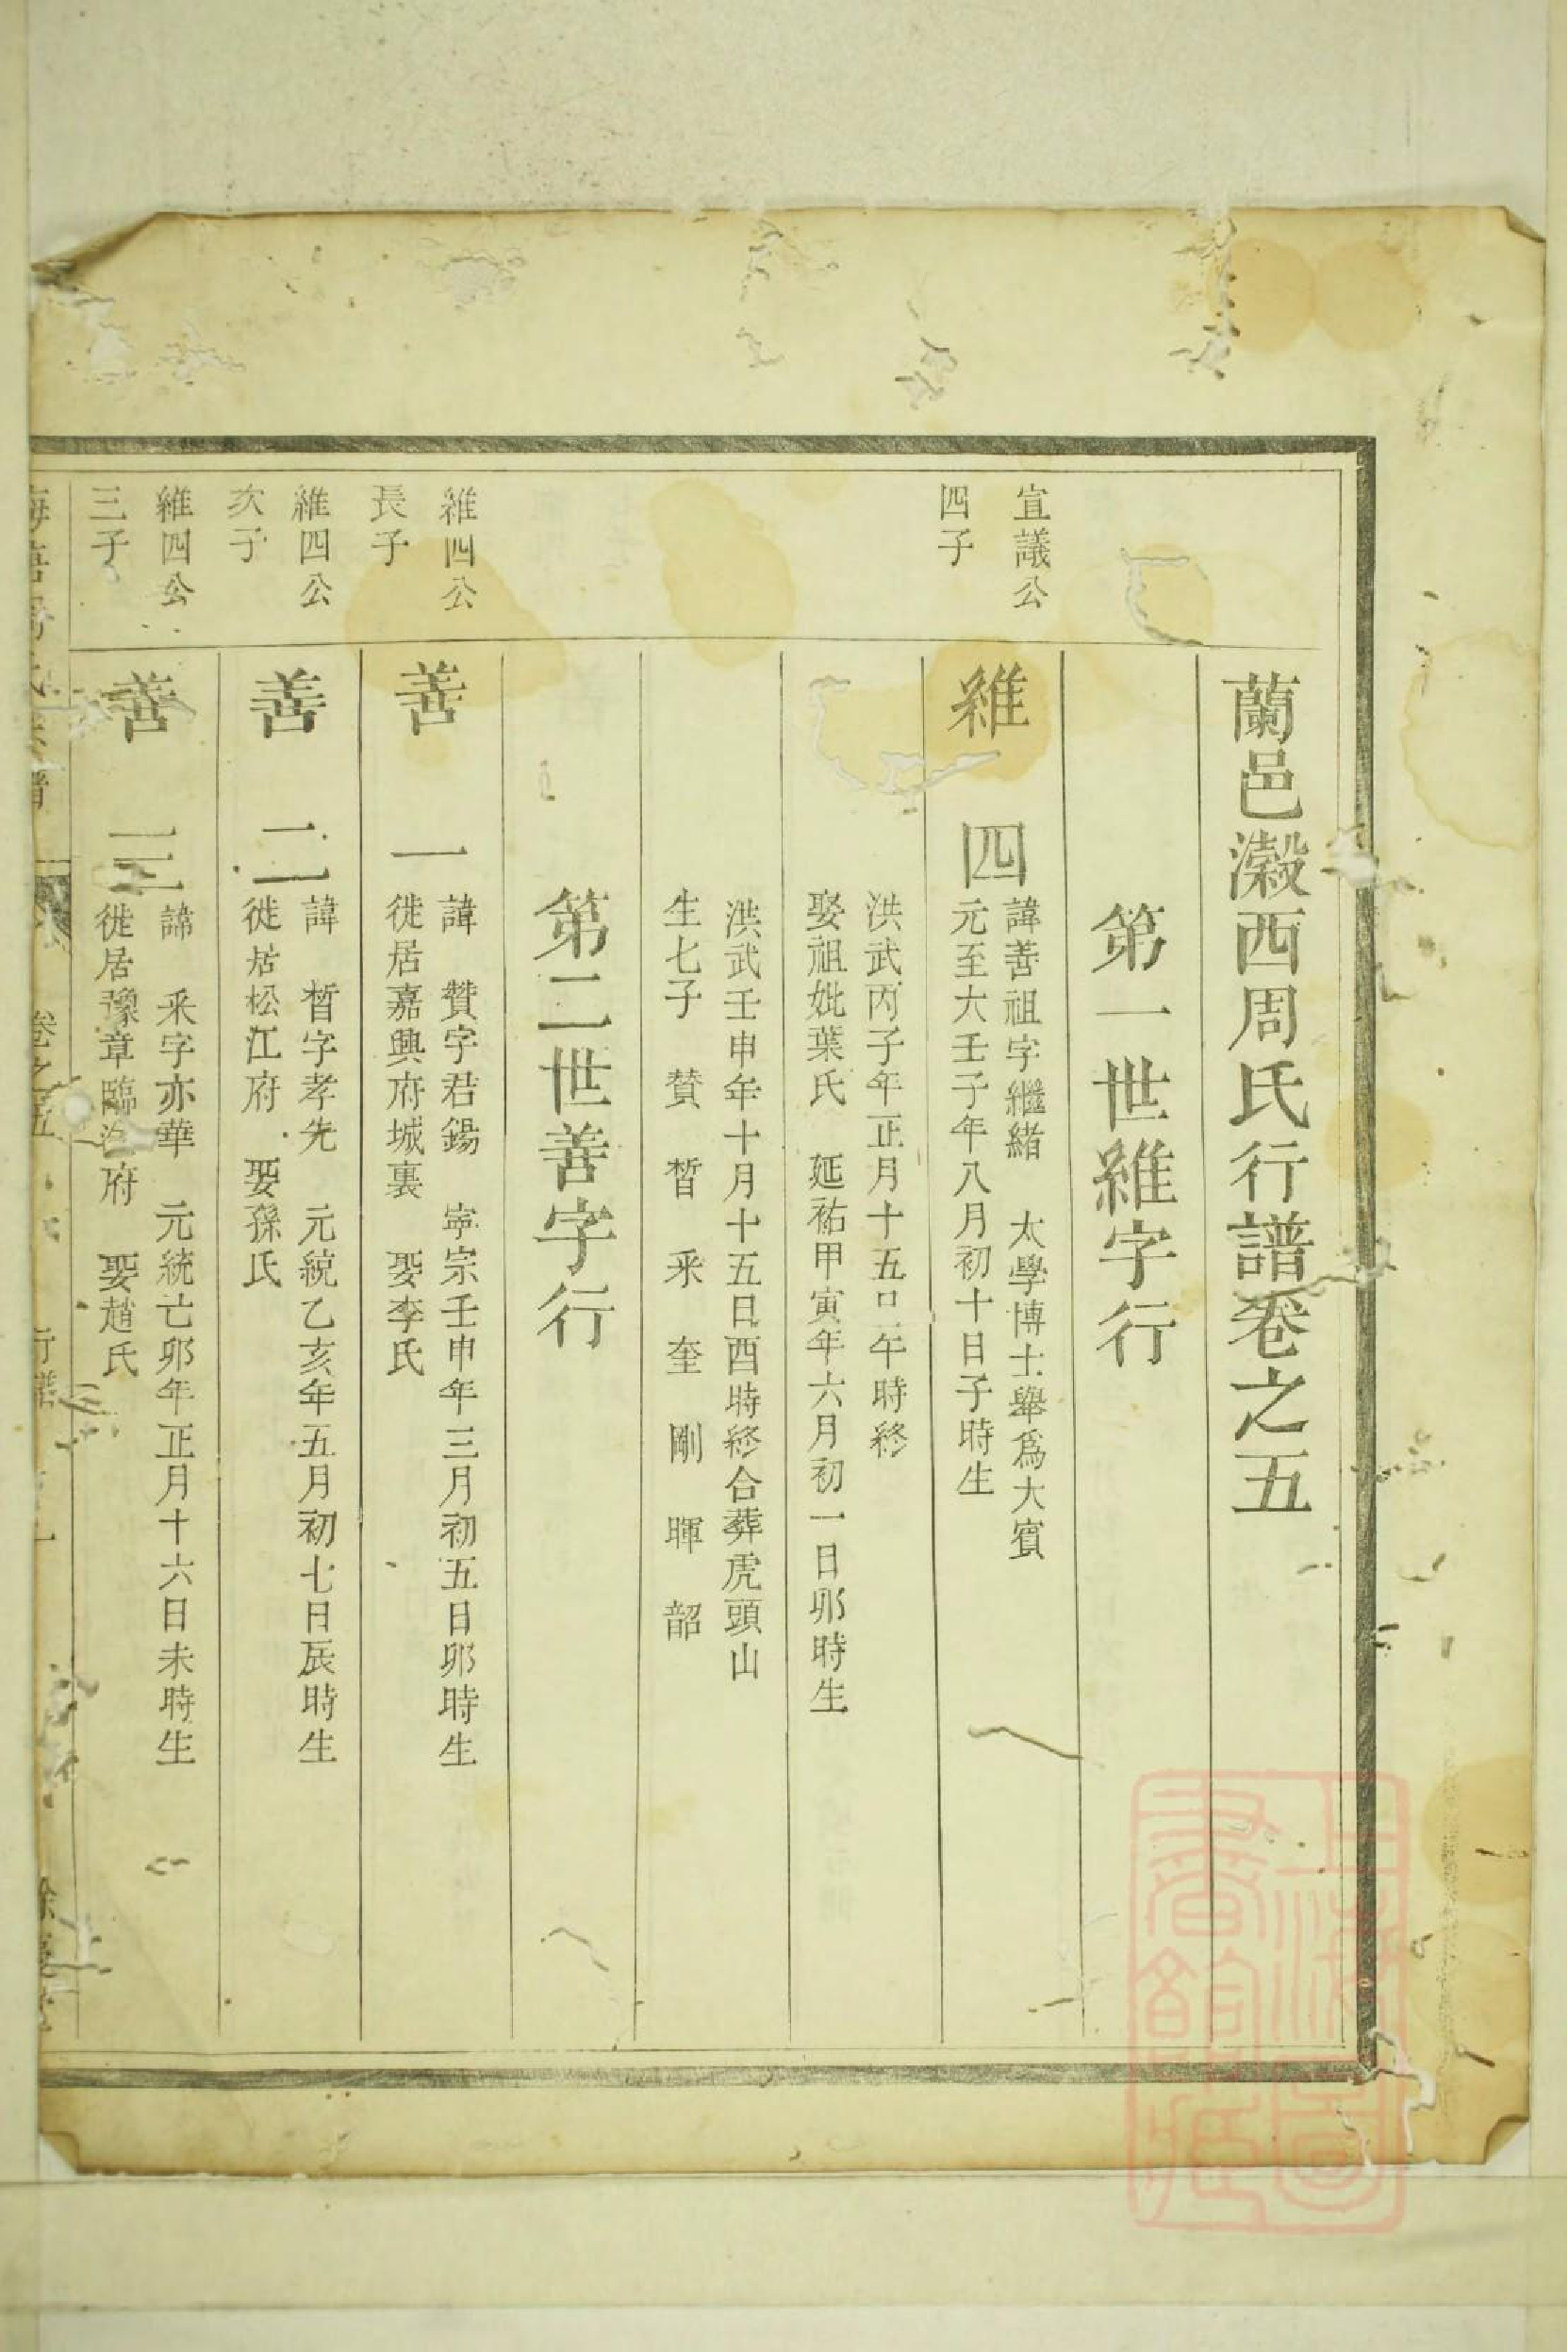 蘭邑瀫西周氏行譜卷之五
第一世維字行
宣議公
四子
維四
諱善祖字繼緒 太學博士舉爲大賓
元至大壬子年八月初十日子時生
洪武丙子年正月十五日午時終
娶祖妣葉氏 延祐甲寅年六月初一日卯時生
洪武壬申年十月十五日酉時終合葬虎頭山
生七子 贊 晳 釆 奎 剛 暉 韶
第二世善字行
維四公
長子
善一
諱 贊字君錫 寧宗壬申年三月初五日卯時生
徙居嘉興府城裏 娶李氏
維四公
次子
善二
諱 晳字孝先 元統乙亥年五月初七日辰時生
徙居松江府 娶孫氏
維四公
三子
善三
諱 釆字亦華 元統亡卯年正月十六日未時生
徙居豫章臨江府 娶趙氏
卷之五
行譜
上海圖書館藏